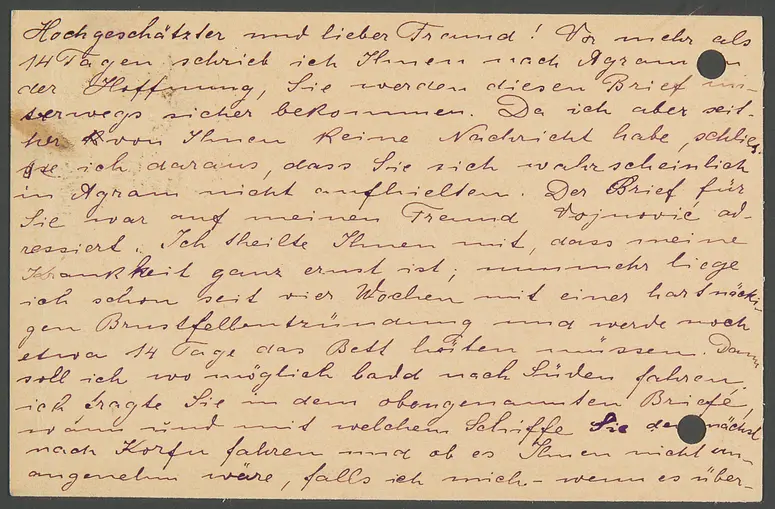 Hochgeschätzter und lieber Freund! Vor mehr als
14 Tagen schrieb ich Ihnen nach Agram in
der Hoffnung, Sie werden diesen Brief un-
terwegs sicher bekommen. Da ich aber seit-
her von Ihnen keine Nachricht habe, schlies-
se ich daraus, dass Sie sich wahrscheinlich
in Agram nicht aufhielten. Der Brief für
Sie war auf meinen Freund Vojnović ad-
ressiert. Ich theilte Ihnen mit, dass meine
Krankheit ganz ernst ist; nunmehr liege
ich schon seit vier Wochen mit einer hartnäcki-
gen Brustfellentzündung und werde noch
etwa 14 Tage das Bett hüten müssen. Dann
soll ich wo möglich bald nach Süden fahren.
ich fragte Sie in dem obengenannten Briefe,
wann und mit welchem Schiffe Sie demnächst
nach Korfu fahren und ob es Ihnen nicht un-
angenehm wäre, falls ich mich - wenn es über-